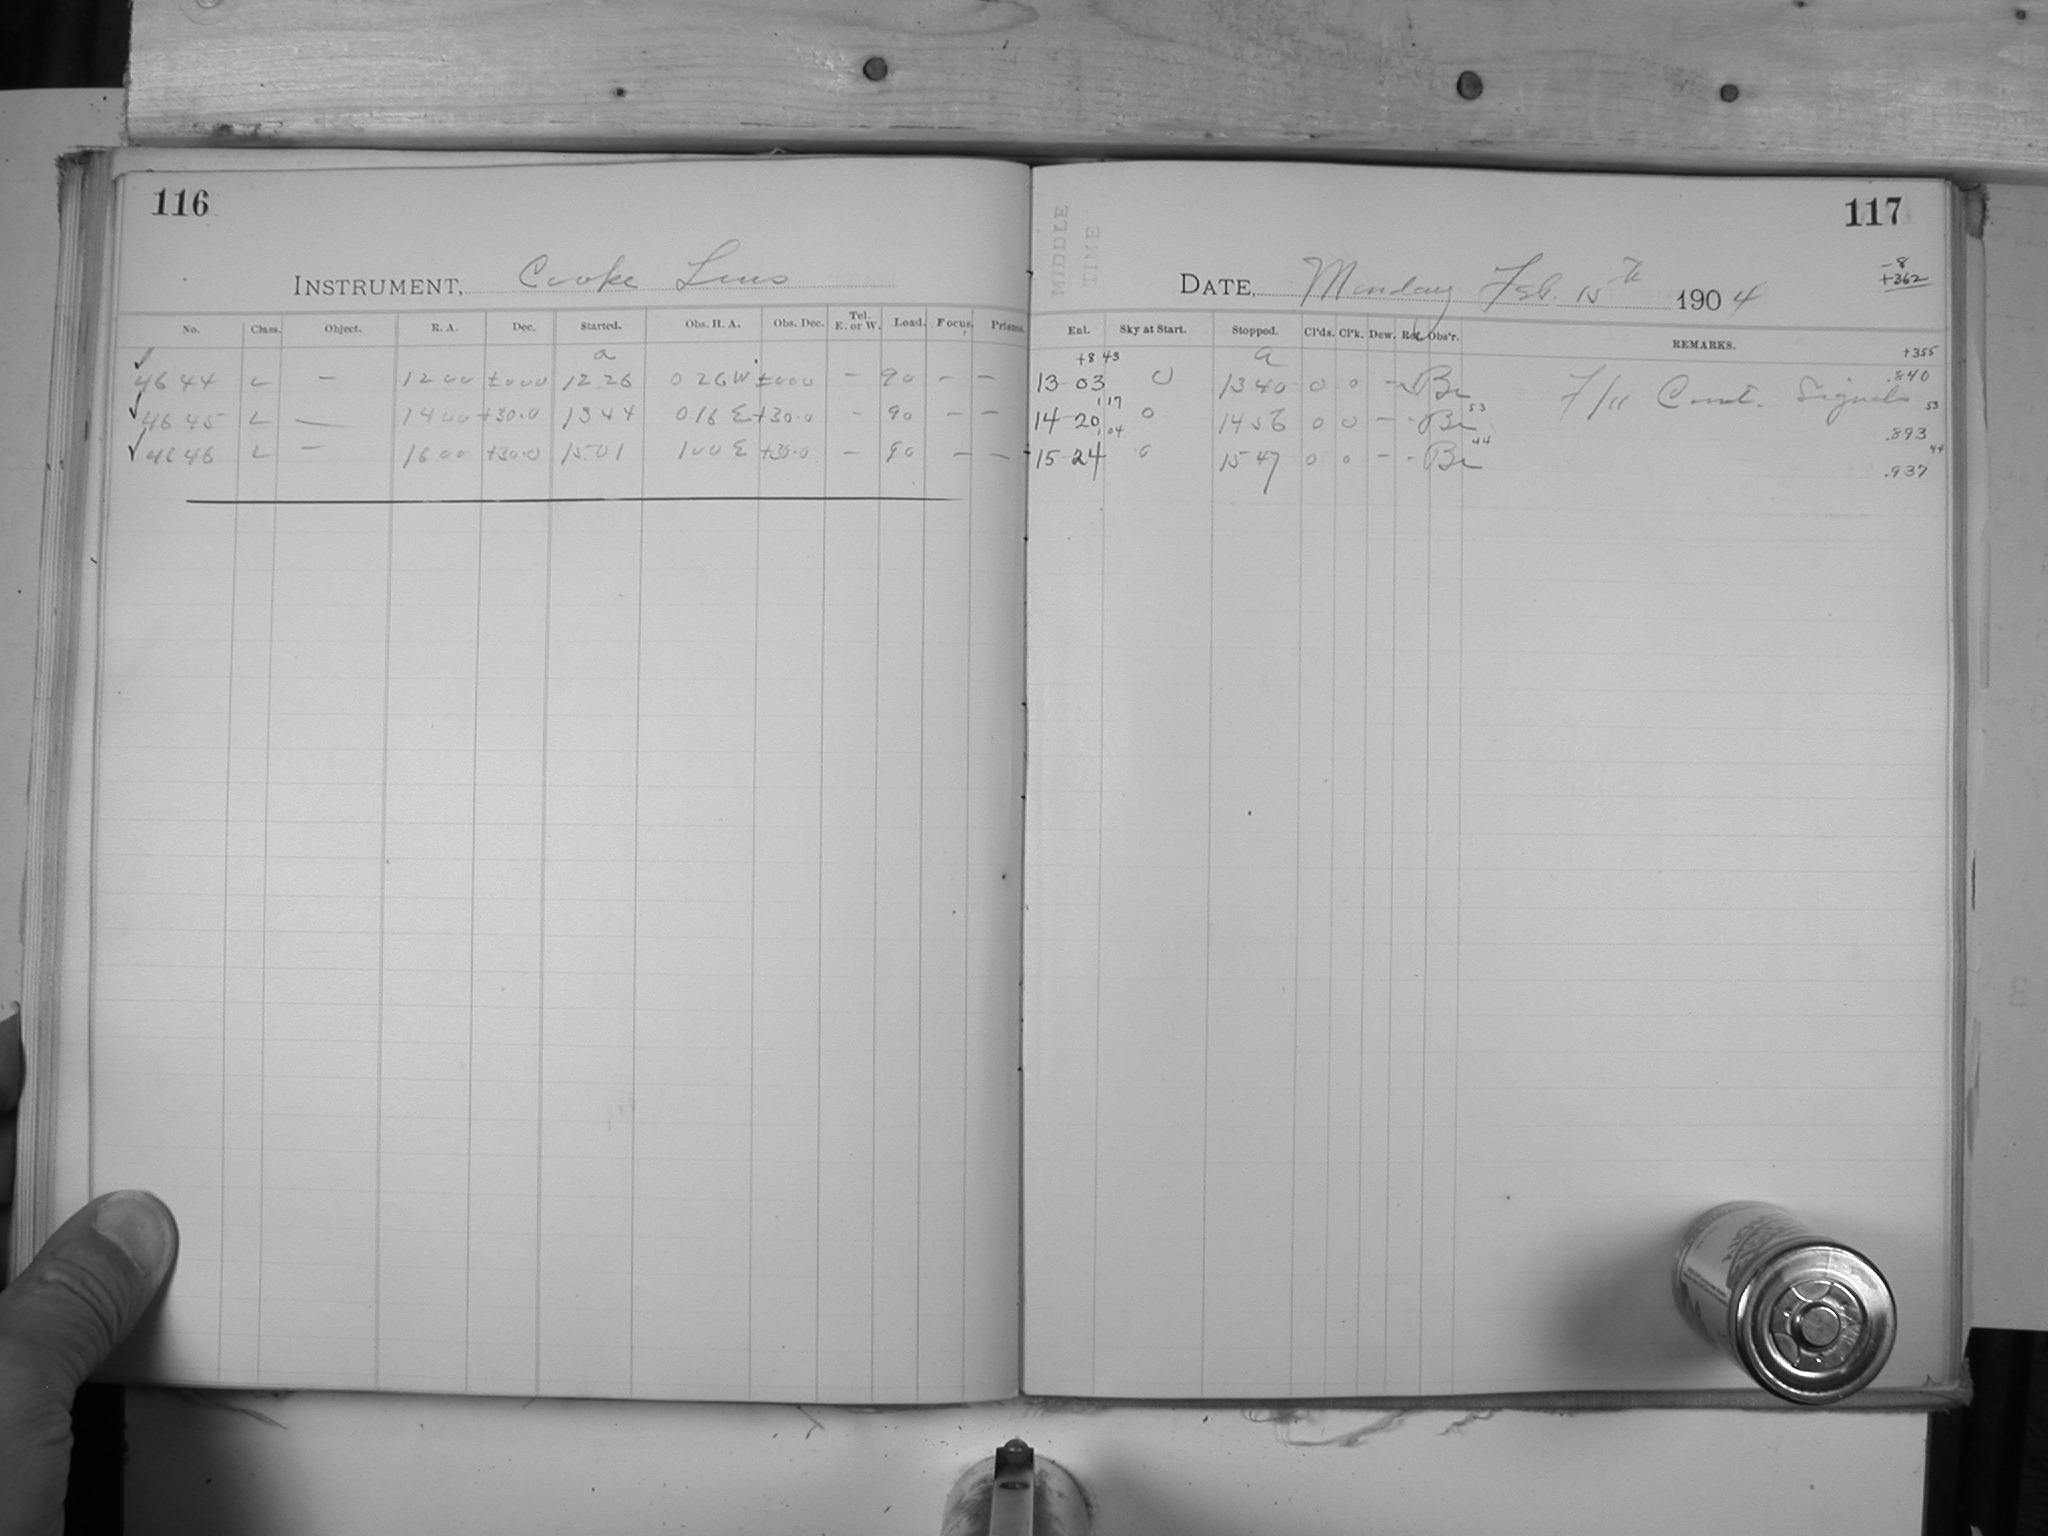 116
INSTRUMENT, Cooke Lens
No. Class. Object. R. A. Dec. Started. Obs. H. A. Obs. Dec. Tel. E. or W. Load. Focus. Prisms.
a
✓ 4644 L — 12 00 ±000 12 26 0 26 W ±000 — 90 — —
✓ 4645 L — 14 00 +30.0 13 44 0 16 E +30.0 — 90 — —
✓ 4646 L — 16 00 +30.0 15 01 1 00 E +30.0 — 90 — —
117
MIDDLE
TIME
-8
+362
DATE, Monday Feb. 15th 1904
Enl. Sky at Start. Stopped. Cl'ds. Cl'k. Dew. Ref. Obs'r. REMARKS.
+8 43 a +355
13-03 0 13 40 0 0 — Br F/11 Const. Signals .840
17 53 53
14-20 0 14 56 0 0 — - Br .893
04 44 44
15-24 0 15 47 0 0 - - Br .937